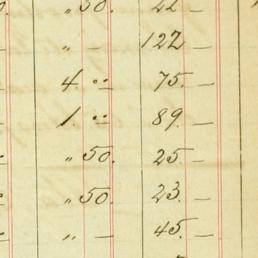 „ 50. 22 —
„ — 122 —
4 " 75. —
1. " 89. —
„ 50. 25 —
„ 50. 23. —
„ — 45. —